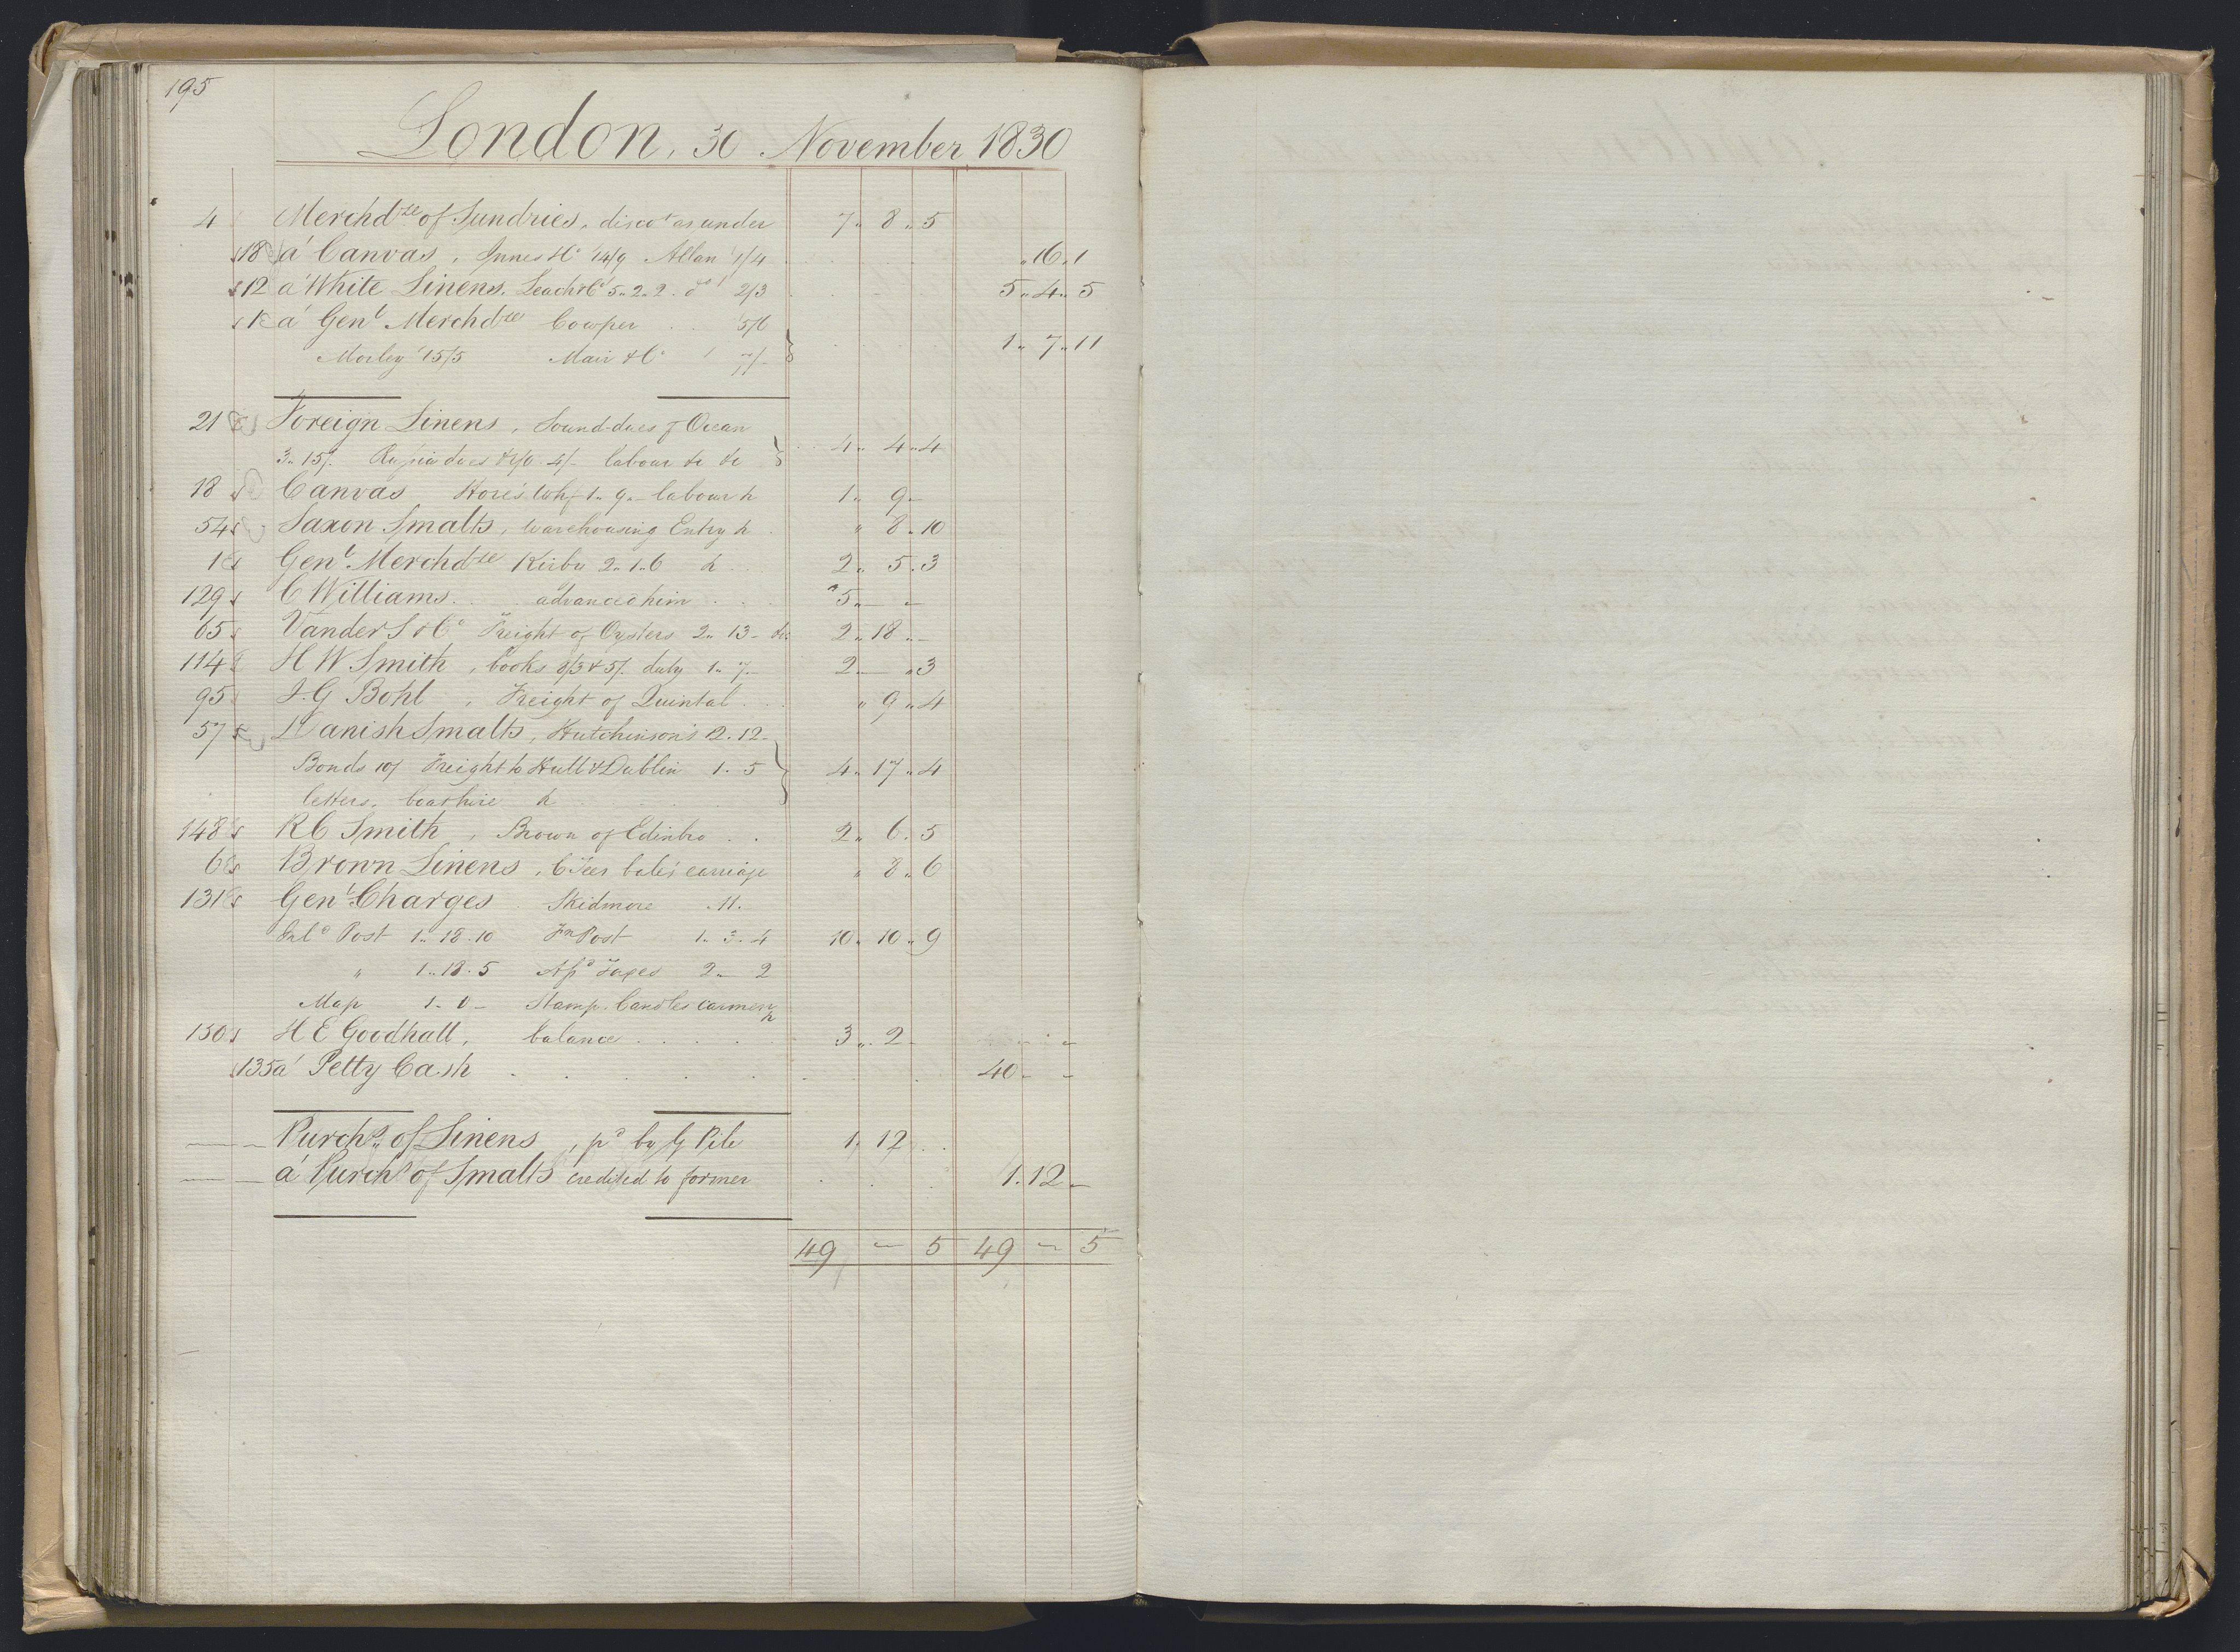 195
London, 30 November 1830
4 Merchdze of Sundries, disct as under 7 „ 8 „ 5
18 á Canvas, Innes & Co 14/9 Allan 1/4 „ 16 „ 1
12 á White Linens. Leach & Co 5 „ 2 „ 2 . do 2/3 5 „ 4 „ 5
1 á Genl Merchdze Cowper . . 5/6
Morley 15/5 Mair & Co 7/- 1 „ 7 „ 11
21 Foreign Linens, Sound-dues Ocean
3 „ 15/. Russia dues 4/- labour &c &c 4 „ 4 „ 4
18 Canvas, Hore's Whf 1 „ 9 „ – labour &c 1 „ 9 –
54 Saxon Smalts, warehousing Entry &c . „ 8 . 10
1 Genl Merchdze Kirby 2 „ 1 „ 6 &c . . 2 „ 5 . 3
129 C Williams . . advanced him . . . 5 „ – –
65 Vander S & Co Freight of Oysters 2 „ 13 – &c 2 „ 18 „ –
114 H W Smith, books 8/3 & 5/. duty 1 „ 7 – 2 – „ 3
95 J. G Bohl, Freight of Quintal . . . „ 9 „ 4
57 Danish Smalts, Hutchinson's 2 . 12 –
Bonds 10/ Freight to Hull & Dublin 1 . 5 4 „ 17 „ 4
letters, boat hire &c
148 R C Smith, Brown of Edinbro . . 2 „ 6 . 5
6 Brown Linens, bale's carriage „ 8 „ 6
131 Genl Charges . Skidmore . 11 .
Post 1 „ 18 . 10 Fn Post 1 . 3 . 4 10 „ 10 „ 9
„ 1 „ 18 . 5 Assd Taxes 2 – 2
Map 1 . 6 – Stamp. Candles carmen &c
130 H E Goodhall, balance . . . . 3 „ 2 –
135 á Petty Cash . . . . . 40 – –
Purchs of Linens, pd by G Pile 1 . 12 . .
á Purchs of Smalts credited to former 1 . 12 –
49 – 5 49 – 5